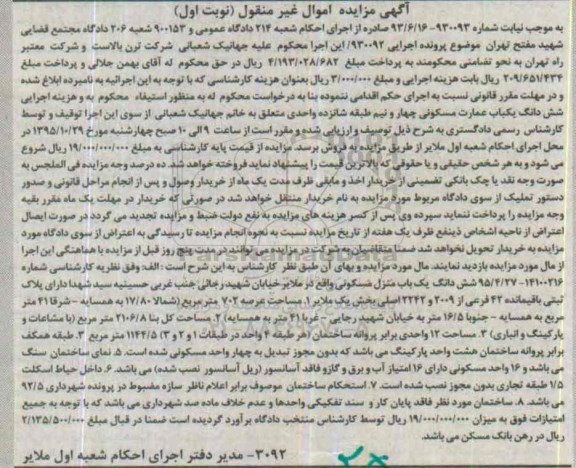 آگهی مزایده اموال غیر منقول (نوبت اول)
به موجب نیابت شماره ۹۳۰۰۹۳-۹۳/۶/۱۶ صادره از اجرای احکام شعبه ۲۱۴ دادگاه عمومی و ۹۰۰۱۵۳ شعبه ۲۰۶ دادگاه مجتمع قضایی
شهید مفتح تهران موضوع پرونده اجرایی ۹۳۰۰۹۲/ این اجرا محکوم علیه جهانیک شعبانی شرکت ترن بالاست و شرکت معتبر
راه تهران به نحو تضامنی محکومند به پرداخت مبلغ ۴/۱۹۳/۰۲۸/۶۸۲ ریال در حق محکوم له آقای بهمن جلالی و پرداخت مبلغ
۲۰۹/۶۵۱/۴۳۴ ریال بابت هزینه اجرایی و مبلغ ۳/۰۰۰/۰۰۰ ریال بعنوان هزینه کارشناسی که با توجه به این اجرائیه به نامبرده ابلاغ شده
و در مهلت مقرر قانونی نسبت به اجرای حکم اقدامی ننموده بنا به درخواست محکوم له به منظور استیفاء محکوم به و هزینه اجرایی
شش دانگ یکباب عمارت مسکونی چهار و نیم طبقه شانزده واحدی متعلق به خانم جهانیک شعبانی از سوی این اجرا توقیف و توسط
کارشناس رسمی دادگستری به شرح ذیل توصیف و ارزیابی شده و مقرر است از ساعت ۹ الی ۱۰ صبح چهارشنبه مورخ ۱۳۹۵/۱۰/۲۹ در
محل اجرای احکام شعبه اول ملایر از طریق مزایده به فروش برسد. مزایده از قیمت پایه کارشناسی به مبلغ ۱۹/۰۰۰/۰۰۰/۰۰۰ ریال شروع
می شود و به هر شخص حقیقی و یا حقوقی که بالاترین قیمت را پیشنهاد نماید فروخته خواهد شد. ده درصد وجه مزایده فی المجلس به
صورت وجه نقد یا چک بانکی تضمینی از خریدار اخذ و مابقی ظرف مدت یک ماه از خریدار وصول و پس از انجام مراحل قانونی و صدور
دستور تملیک از سوی دادگاه مربوط مورد مزایده به نام خریدار منتقل خواهد شد در صورتی که خریدار در مهلت یک ماه مقرر بقیه
وجه مزایده را پرداخت ننماید سپرده وی پس از کسر هزینه های مزایده به نفع دولت ضبط و مزایده تجدید می گردد در صورت ایصال
اعتراض از ناحیه اشخاص ذینفع ظرف یک هفته از تاریخ مزایده نسبت به نحوه انجام مزایده تا رسیدگی به اعتراض از سوی دادگاه مورد
مزایده به خریدار تحویل نخواهد شد ضمنا متقاضیان به شرکت در مزایده می توانند در مدت پنج روز قبل از مزایده با هماهنگی این اجرا
از مال مورد مزایده بازدید نمایند. مال مورد مزایده و بهای آن طبق نظر کارشناس به این شرح است: الف: وفق نظریه کارشناسی شماره
۱۴۱۰۰۲۱۶-۹۵/۴/۲۷ شش دانگ یک باب منزل مسکونی واقع در ملایر خیابان شهید رجائی جنب غربی حسینیه سید شهدا دارای پلاک
ثبتی باقیمانده ۴۲ فرعی از ۲۰۰۹ و ۲۲۴۲ اصلی بخش یک ملایر ۱. مساحت عرصه ۷۰۲ متر مربع (شمالا ۱۷/۸۰ به همسایه - شرقا ۴۱ متر
مربع به همسایه - جنوبا ۱۶/۵ متر به خیابان شهید رجایی - غربا ۴۱ متر به همسایه) ۲. مساحت کل بنا ۲۱۰۶/۸ متر مربع (با مشاعات و
پارکینگ و انباری) ۳. مساحت ۱۲ واحدی برابر پروانه ساختمان (هر طبقه ۴ واحد در طبقات ۱ و ۲ و ۳) ۱۱۴۴/۵ متر مربع ۴. طبقه همکف
برابر پروانه ساختمان هشت واحد پارکینگ می باشد که بدون مجوز تبدیل به چهار واحد مسکونی شده است. ۵. نمای ساختمان سنگ
می باشد و ۱۶ واحد مسکونی دارای ۱۶ امتیاز آب و برق و گاز و فاقد آسانسور (ریل آسانسور نصب شده) می باشد. ۶. داخل حیاط اسکلت
۱/۵ طبقه تجاری بدون مجوز نصب شده است. ۷. استحکام ساختمان موصوف برابر اعلام ناظر سازه مضبوط در پرونده شهرداری ۹۲/۵
می باشد. ۸. ساختمان مورد نظر فاقد پایان کار و سند تفکیکی واحدها و عدم خلاف ماده صد شهرداری می باشد که با توجه به جمیع
امتیازات فوق به میزان ۱۹/۰۰۰/۰۰۰/۰۰۰ ریال توسط کارشناس منتخب دادگاه برآورد گردیده است ضمنا در قبال مبلغ ۲/۱۳۵/۵۰۰/۰۰۰
ریال در رهن بانک مسکن می باشد.
۳۰۹۲- مدیر دفتر اجرای احکام شعبه اول ملایر